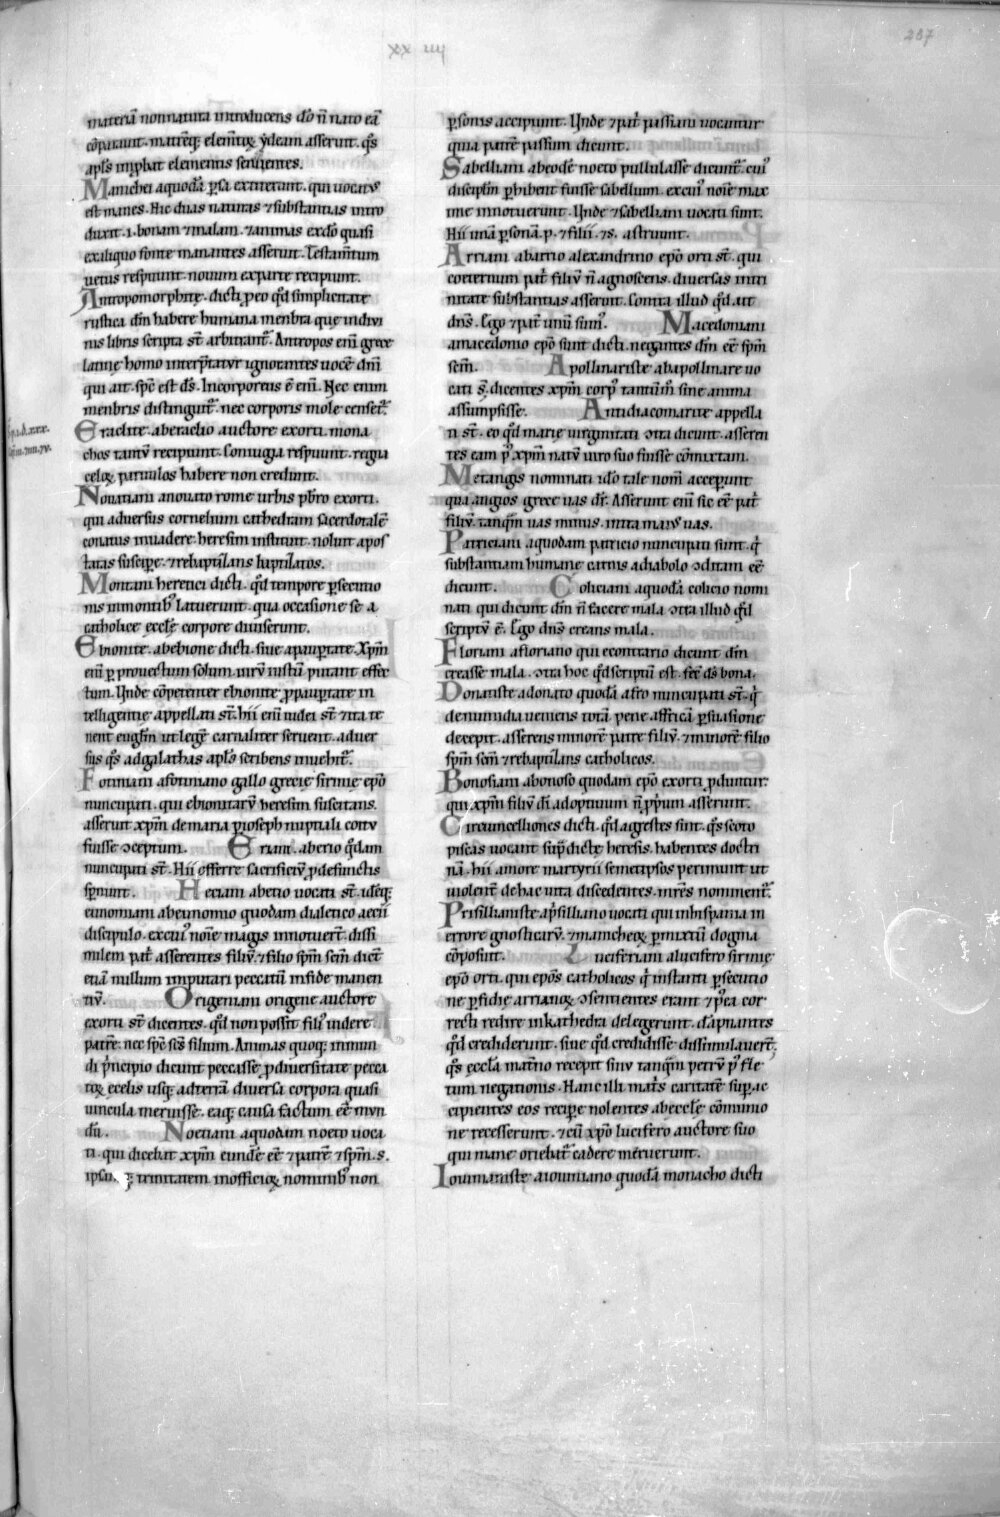 xx iiii
237
materiā non natura introducens dō n̄ nato eā
cōparaunt. matrēq; elemtoꝝ ydeam asserunt. qͦs
apl̄s īphat elementis seruientes.
Manichei a quodā ꝑsa extiterunt. qui uocatus
est manes. Hic duas naturas ⁊ substantias intro
duxit .i. bonam ⁊ malam. ⁊ animas ex dō quasi
ex aliquo fonte manantes asserunt. Testam̄tum
uetus respuunt. nouum ex parte recipiunt.
Antropomorphite. dicti ꝑ eo qd̄ simplicitate
rustica dm̄ habere humana menbra que in diui
nis libris scripta st̄ arbitrant᷑. Antropos eni᷑ grece
latine homo interp̄tatur ignorantes uocē dni᷑
qui ait. sp̄c est ds̄. Incorporeus ē eni᷑. Nec enim
menbris distinguit᷑. nec corporis mole censet᷑.
Eraclite. ab eraclio auctore exorti. mona
chos tantū recipiunt. Coniugia respuunt. regna
celoꝝ paruulos habere non credunt.
Nouatiani a nouato rome urbis pbr̄o exorti.
qui aduersus cornelium cathedram sacerdotalē
conatus inuadere. heresim instituit. nolunt apos
tatas suscipe. ⁊ rebaptizans baptizatos.
Montani heretici dicti. qd̄ tempore ꝑsecutio
nis in montibꝰ latuerunt. qua occasione se a
catholice eccle᷑ corpore diuiserunt.
Ebionite. ab ebione dicti. siue a paupertate. Xpm̄
eni᷑ ꝑ prouectum solum. uirū iustū putant effec
tum. Unde cōpetenter ebionite ꝓ pauptate in
telligentie appellati st̄. hii eni᷑ iudei st̄ ⁊ ita te
nent eugl̄m ut legē carnaliter seruent. aduer
sus qͦs ad galathas apl̄s scribens inuehit᷑.
Fotiniani a fotiniano gallo grecie sirmie ep̄o
nuncupati. qui ebionitarū heresim suscitans.
asserunt xpm̄ de maria ꝑ ioseph nuptiali coitu
fuisse ɔceptum. Eriani. ab erio qd̄am
nuncupati st̄. Hii offerre sacrificiū ꝓ defunctis
spnunt. Hetiani ab etio uocati st̄. idēq;
eunomiani ab eunomio quodam dialetico aetii
discipulo. ex cuiꝰ noīe magis innotuert̄. dissi
milem patī asserentes filiū. ⁊ filio spm̄ scm̄ dict̄
etiā nullum imputari peccatū in fide manen
tiū. Origeniani origene auctore
exorti st̄ dicentes. qd̄ non possit filiꝰ uidere
patrē. nec sp̄c scs̄ filium. Animas quoq; in mun
di p̄ncipio dicunt peccasse ꝓ diuersitate pecca
toꝝ ecelis usq; ad terrā diuersa corpora quasi
uincula meruisse. eaq; causa factum eē mun
dū. Noetiani a quodam noeto uoca
ti. qui dicebat xpm̄ eundē eē ⁊ patrē ⁊ spm̄ .s.
ipsū. trinitatem in officioꝝ nominibꝰ non
ꝑsonis accipiunt. Unde ⁊ patī passiani uocantur
quia patrē passum dicunt.
Sabelliani ab eodē noeto pullulasse dicunt᷑. cuiꝰ
discipl̄m ꝑhibent fuisse sabellium. ex cuiꝰ noīe max
ime innotuerunt. Unde ⁊ sabelliani uocati sunt.
Hii unā ꝑsonā .p. ⁊ filii. ⁊ .s. astruunt.
Arriani ab arrio alexandrino ep̄o orti st̄. qui
coeternum patī filiū n̄ agnoscens. diuersas in tri
nitate substantias asseruit. Contra illud qd̄ ait
dns̄. Ego ⁊ pat᷑ unū sumꝰ. Macedoniani
a macedonio ep̄o sunt dicti. negantes dm̄ eē spm̄
scm̄. Apollinariste ab apollinare uo
cati s̄. dicentes xpm̄ corpꝰ tantum̄ sine anima
assumpsisse. Antidiacomarite appella
ti st̄. eo qd̄ marie uirginitati ɔtra dicunt. asseren
tes eam pꝰ xpm̄ natū uiro suo fuisse cōmixtam.
Metangis nominati idō tale nom̄ acceperunt
quia angios grece uas dr̄. Asserunt eni᷑ sic eē patī
filiū. tanqm̄ uas minus. intra maius uas.
Patriciani a quodam patricio nuncupati sunt. q̄
substantiam humane carnis a diabolo ɔditam eē
dicunt. Coliciani a quodā colicio nomi
nati qui dicunt dm̄ n̄ facere mala ɔtra illud qd̄
scriptū ē. Ego dns̄ creans mala.
Floriani a floriano qui econtrario dicunt dm̄
creasse mala. ɔtra hoc qd̄ scriptū est. fec̄ ds̄ bona.
Donatiste a donato quodā afro nuncupati st̄. q̄
de numidia ueniens totā pene affricā ꝑsuasione
decepit. asserens minorē patre filiū. ⁊ minorē filio
spm̄ scm̄ ⁊ rebaptizans catholicos.
Bonosiani a bonoso quodam ep̄o exorti ꝓduntur.
qui xpm̄ filiū dī adoptiuum n̄ ꝓprium asserunt.
Circuncelliones dicti. qd̄ agrestes sint. qͦs scoto
piseas uocant sup̄dicte heresis. habentes doctri
nā. hii amore martyrii semetipsos perimunt ut
uiolent̄ de hac uita discedentes. mr̄es nominent᷑.
Priscillianiste a p̄scilliano uocati qui in hispania in
errore gnosticarū. ⁊ manicheoꝝ permixtū dogma
cōposuit. Luciferiani a lucifero sirmie
ep̄o orti. qui ep̄os catholicos q̄ instanti ꝑsecutio
ne ꝑfidie arrianoꝝ ɔsentientes erant ⁊ pꝰea cor
recti redire in kathedra delegerunt. dāpnantes
qd̄ crediderunt. siue qd̄ credidisse dissimulauert̄.
qͦs eccl̄a mat̄no recepit sinu tanqm̄ petrū pꝰ fle
tum negationis. Hanc illi mat̄s caritatē sup̄ac
cipientes eos recipe nolentes ab eccle᷑ cōmunio
ne recesserunt. ⁊ cū xpo lucifero auctore suo
qui mane oriebat᷑ cadere meruerunt.
Iouinianiste a iouiniano quodā monacho dicti